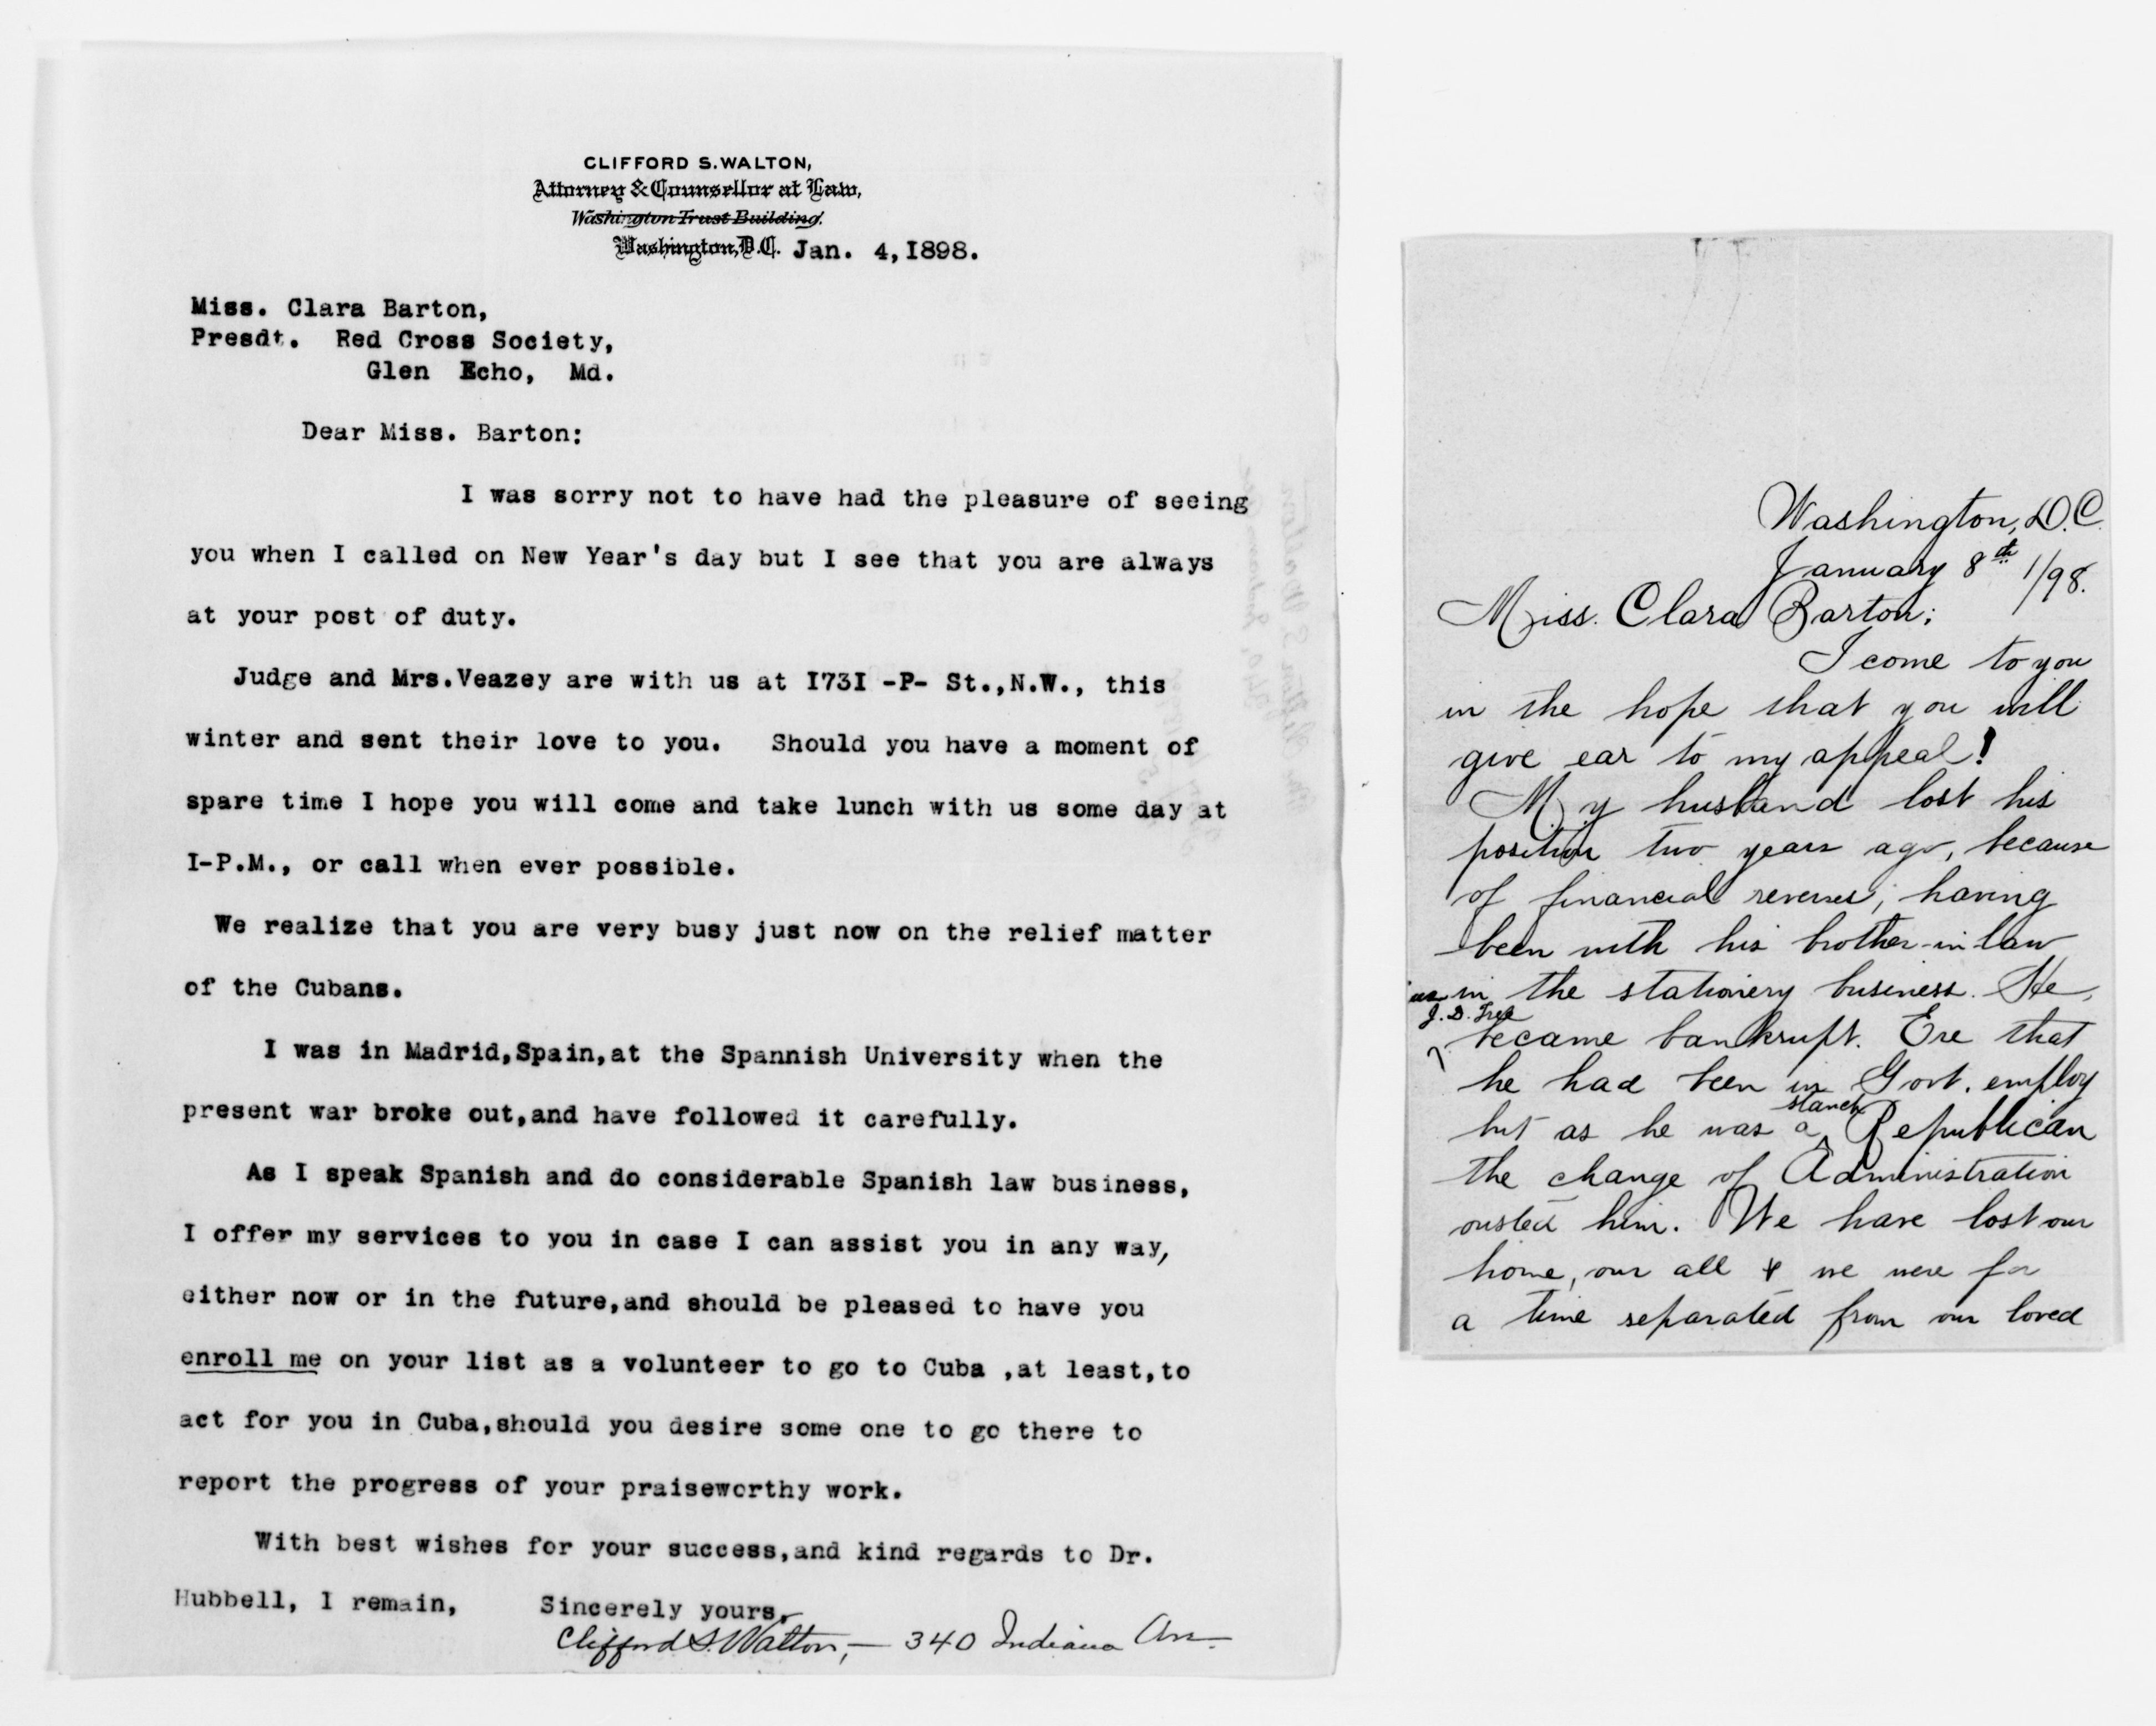 CLIFFORD S. WALTON,
Attorney & Counsellor at Law,
Washington Trust Building.
Washington, D.C. Jan. 4,I898.
Miss. Clara Barton,
Presdt. Red Cross Society,
Glen Echo, Md.
Dear Miss. Barton:
I was sorry not to have had the pleasure of seeing
you when I called on New Year's day but I see that you are always
at your post of duty.
Judge and Mrs.Veazey are with us at I73I -P- St.,N.W., this
winter and sent their love to you. Should you have a moment of
spare time I hope you will come and take lunch with us some day at
I-P.M., or call when ever possible.
We realize that you are very busy just now on the relief matter
of the Cubans.
I was in Madrid,Spain,at the Spannish University when the
present war broke out,and have followed it carefully.
As I speak Spanish and do considerable Spanish law business,
I offer my services to you in case I can assist you in any way,
either now or in the future,and should be pleased to have you
enroll me on your list as a volunteer to go to Cuba ,at least,to
act for you in Cuba,should you desire some one to go there to
report the progress of your praiseworthy work.
With best wishes for your success,and kind regards to Dr.
Hubbell, I remain, Sincerely yours,
Clifford S. Walton, — 340 Indiana Ave.
Washington, D.C.
January 8th 1/98.
Miss. Clara Barton;
I come to you
in the hope that you will
give ear to my appeal!
My husband lost his
position two years ago, because
of financial reverses; having
been with his brother-in-law
in the stationery business. He,
J. D. Free
became bankrupt. Ere that
he had been in Govt. employ
but as he was a stanch Republican
the change of Administration
ousted him. We have lost our
home, our all & we were for
a time separated from our loved